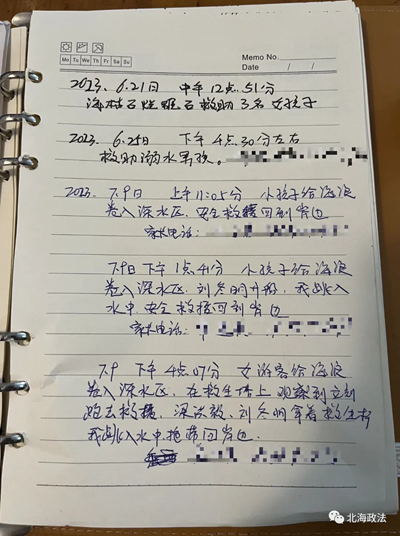 Memo No.
Mo Tu We Th Fr Sa Su
Date / /
2023. 6.21日 中午12点51分
救助3名女孩子
2023. 6.25日 下午4点30分左右
救助溺水男孩。
2023. 7.9日 上午11:05分 小孩子给海浪
卷入深水区,安全救援回到岸边
家长电话:
7.9日 下午1点41分 小孩子给海浪
卷入深水区,刘冬明开船,我跳入
水中安全救援回到岸边
家长电话:
7.9 下午4点07分 女游客给海浪
卷入深水区,在救生台上观察到立刻
跑去救援,深汝敏、刘冬明拿着救生板
我跳入水中拖带回岸边.
北海政法